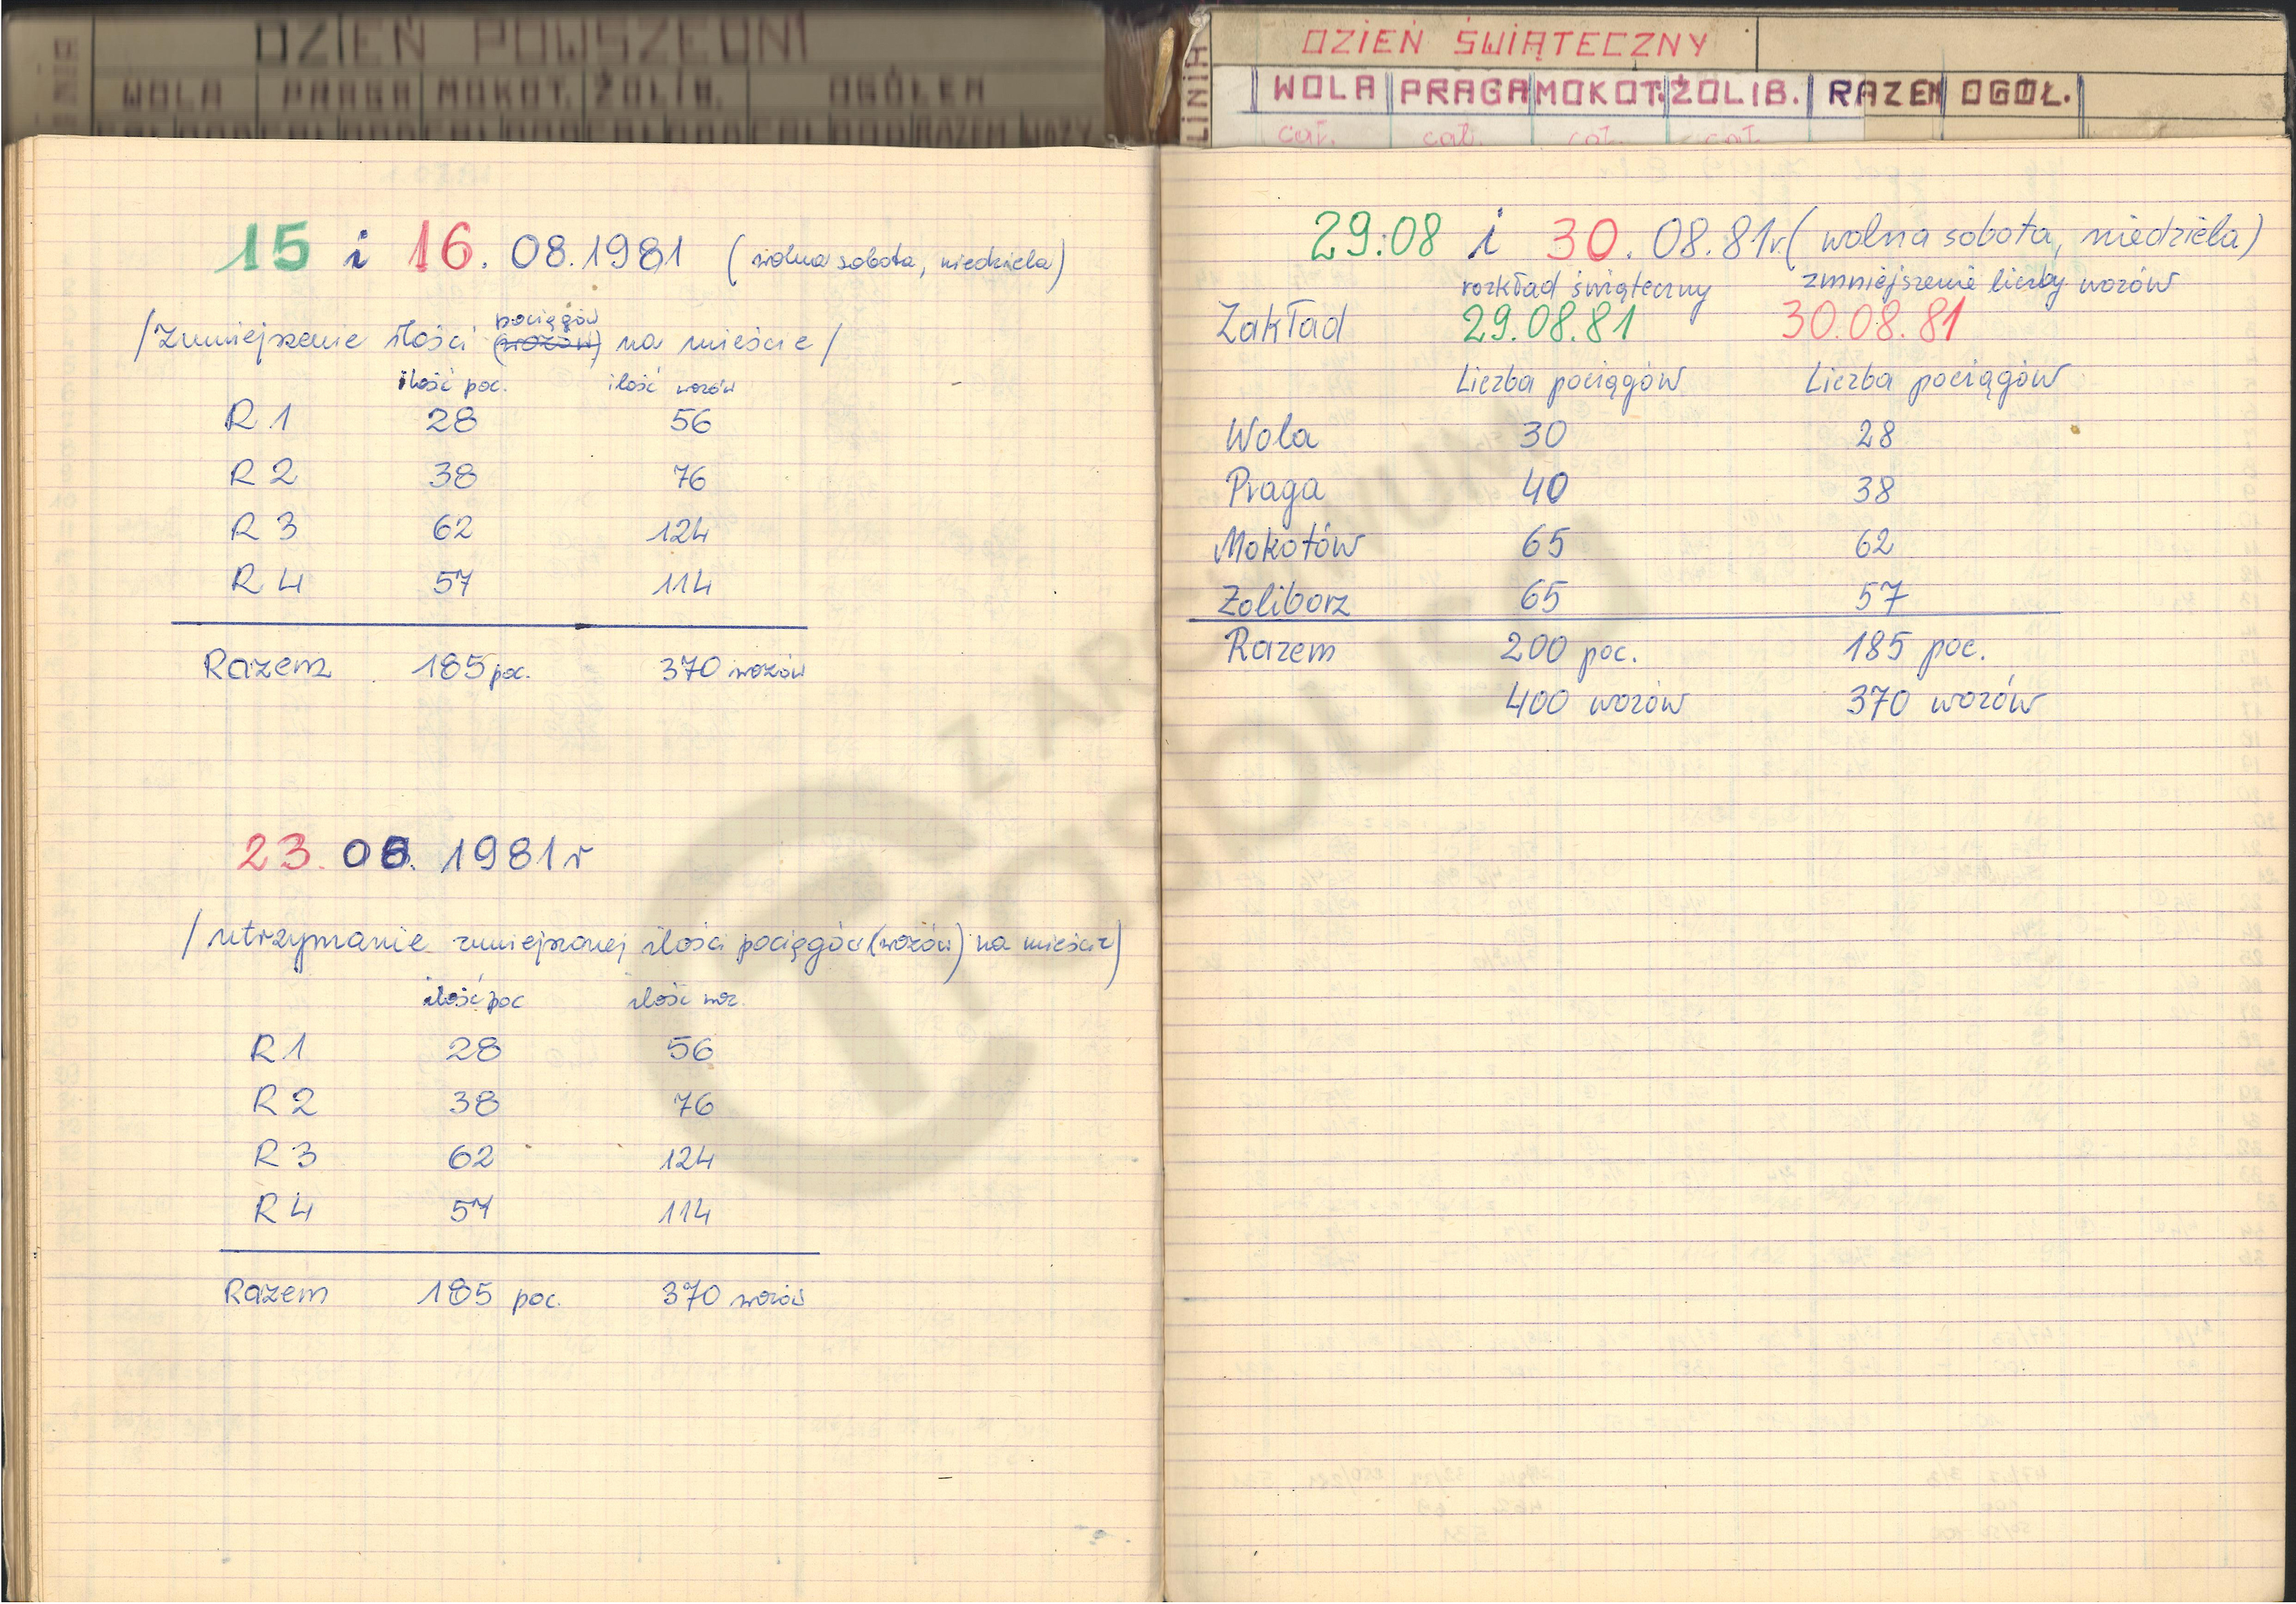 DZIEŃ POWSZEDNI
WOLA PRAGA MOKOT. ŻOLIB. OGÓŁEM
15 i 16. 08.1981 (wolna sobota, niedziela)
pociągów
/Zmniejszenie ilości (wozów) na mieście/
ilość poc. ilość wozów
R1 28 56
R2 38 76
R3 62 124
R4 57 114
Razem 185 poc. 370 wozów
23. 08. 1981r
/utrzymanie zmniejszonej ilości pociągów (wozów) na mieście)
ilość poc ilość woz.
R1 28 56
R2 38 76
R3 62 124
R4 57 114
Razem 185 poc. 370 wozów
LINIA
DZIEŃ ŚWIĄTECZNY
WOLA PRAGA MOKOT. ŻOLIB. RAZEM OGÓŁ.
cał. cał. cał. cał.
29.08 i 30. 08.81r. (wolna sobota, niedziela)
rozkład świąteczny zmniejszenie liczby wozów
Zakład 29.08.81 30.08.81
Liczba pociągów Liczba pociągów
Wola 30 28
Praga 40 38
Mokotów 65 62
Żoliborz 65 57
Razem 200 poc. 185 poc.
400 wozów 370 wozów